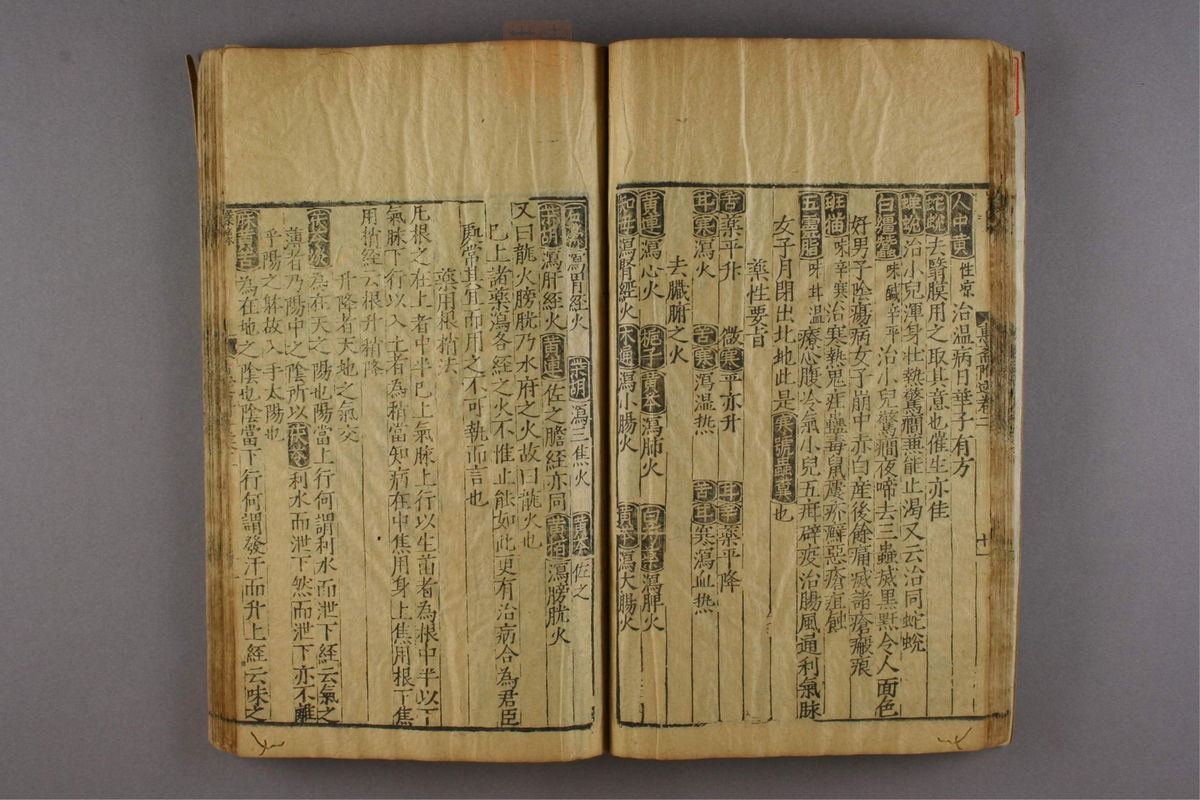 人中黄 性凉 治温病日華子有方
蛇蛻 去翳膜用之取其意也催生亦佳
蟬蛻 治小兒渾身壯熱驚癇兼能止渴又云治同蛇蛻
白殭蠶 味鹹辛平 治小兒驚癇夜啼去三蟲滅黒䵟令人面色
好男子陰瘍病女子崩中赤白産後餘痛滅諸瘡瘢痕
班猫 味辛寒 治寒熱鬼疰蠱毒鼠瘻疥癬惡瘡疽蝕
五靈脂 味甘温 療心腹冷氣小兒五疳辟疫治腸風通利氣脉
女子月閉出北地此是寒號蟲糞也
藥性要旨
苦藥平升 微寒平亦升 甘辛藥平降
甘寒瀉火 苦寒瀉湿熱 苦甘寒瀉血熱
去臟腑之火
黄連瀉心火 梔子黄芩瀉肺火 白芍藥瀉脾火
知母瀉腎經火 木通瀉小腸火 黄芩瀉大腸火
石膏瀉胃經火 柴胡瀉三焦火 黄芩佐之
柴胡瀉肝經火 黄連佐之膽經亦同 黄栢瀉膀胱火
又曰龍火膀胱乃水府之火故曰龍火也
已上諸藥瀉各經之火不惟止能如此更有治病合為君臣
處常其宜而用之不可執而言也
藥用根梢法
凡根之在上者中半已上氣脉上行以生苗者為根中半以下
氣脉下行以入土者為梢當知病在中焦用身上焦用根下焦
用梢經云根升梢降
升降者天地之氣交
茯苓 為在天之陽也陽當上行何謂利水而泄下經云氣之
薄者乃陽中之陰所以茯苓利水而泄下然而泄下亦不離
乎陽之躰故入手太陽也
麻黄苦 為在地之陰也陰當下行何謂發汗而升上經云味之